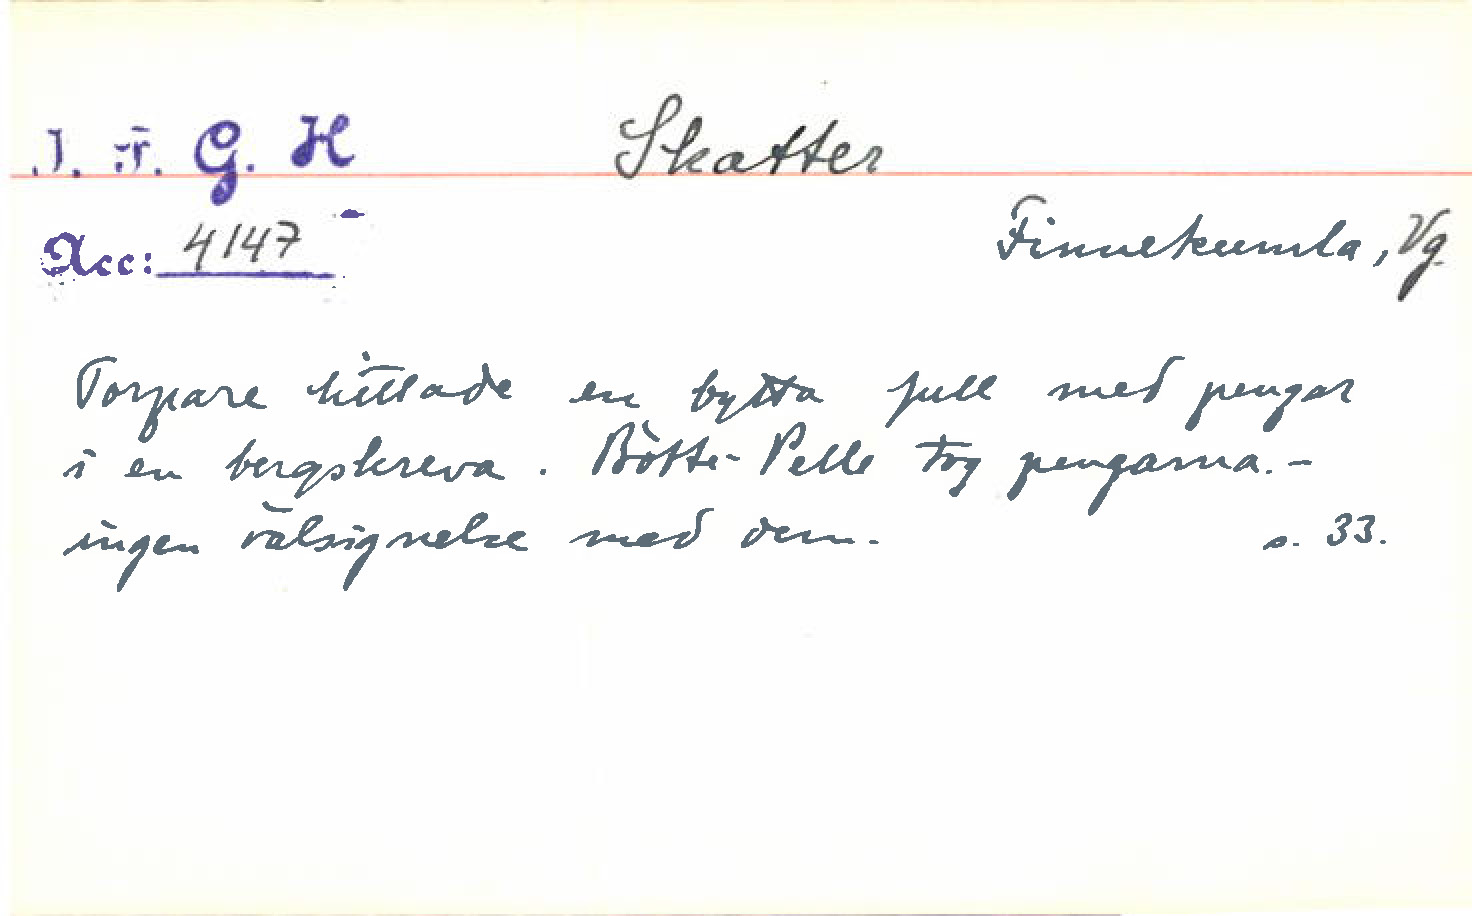 I. F. G. H Skatter
Acc: 4147 Finnekumla, Vg.
Torpare hittade en bytta full med pengar
i en bergskreva. Botte-Pelle tog pengarna.-
ingen välsignelse med dem. s. 33.